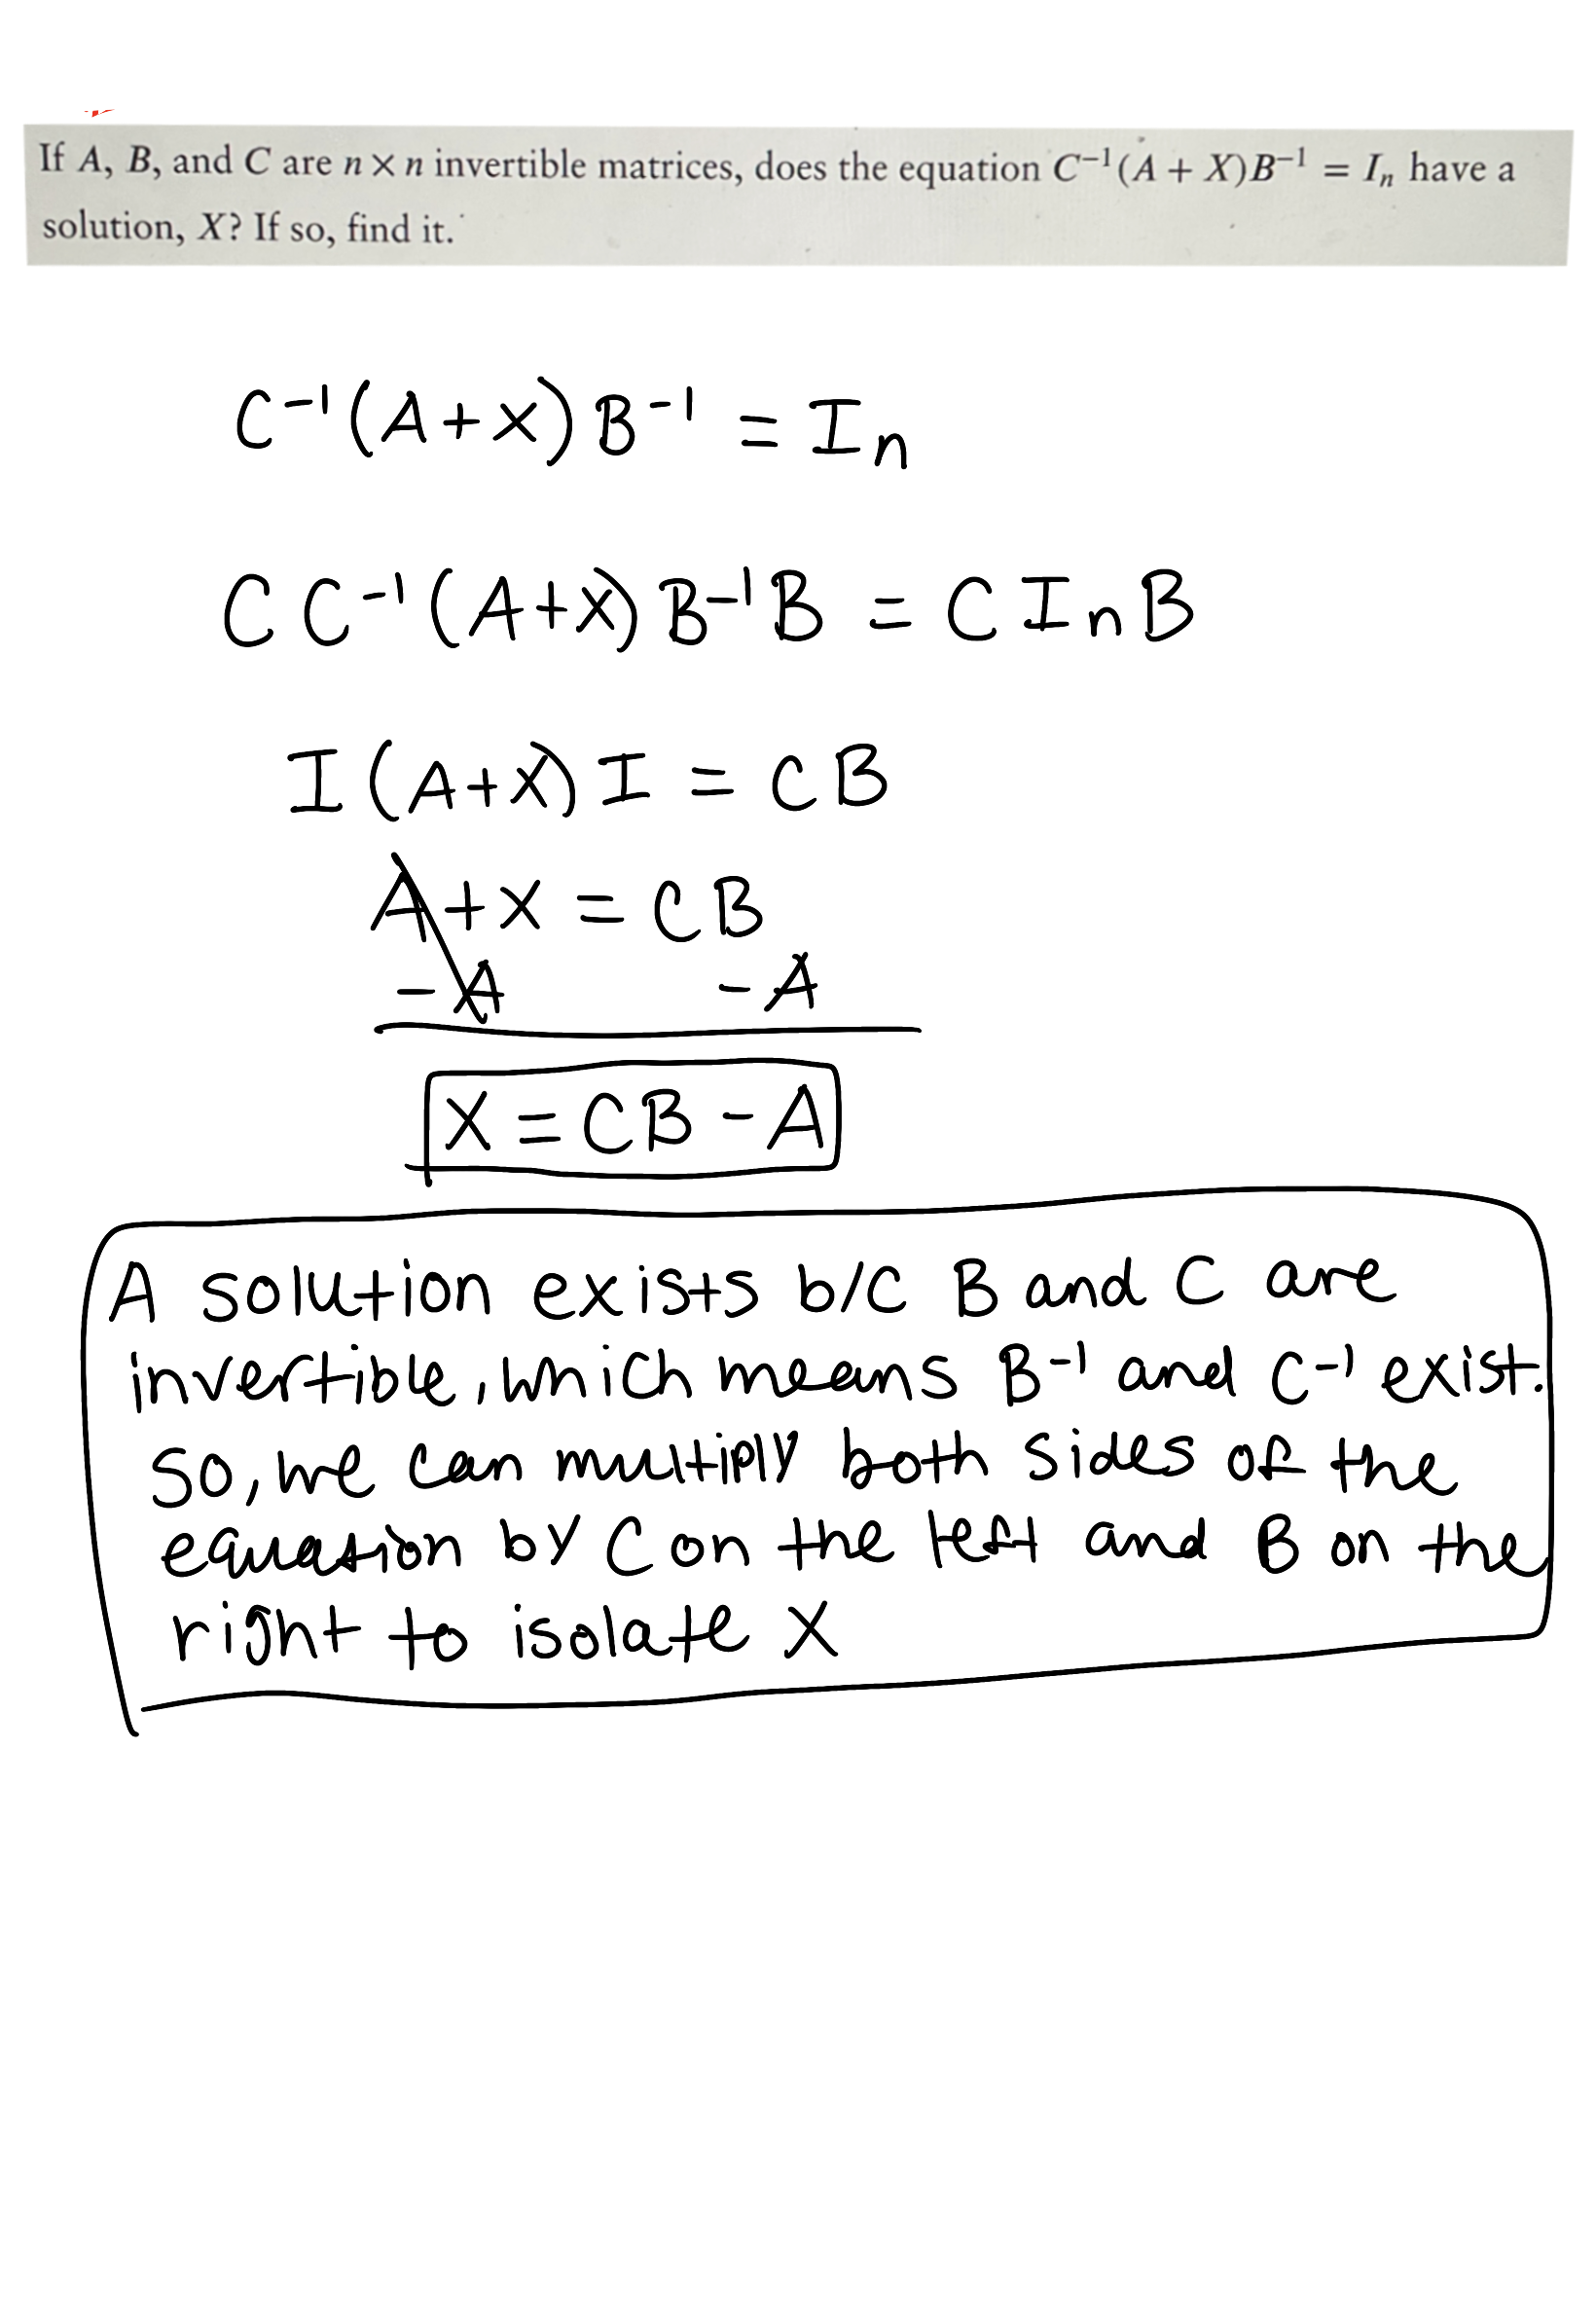 If A, B, and C are n × n invertible matrices, does the equation C⁻¹(A + X)B⁻¹ = Iₙ have a
solution, X? If so, find it.
C⁻¹(A+X)B⁻¹ = In
CC⁻¹(A+X)B⁻¹B = CInB
I(A+X)I = CB
A+X = CB
-A -A
X = CB - A
A solution exists b/c B and C are
invertible, which means B⁻¹ and C⁻¹ exist.
So, we can multiply both sides of the
equation by C on the left and B on the
right to isolate X